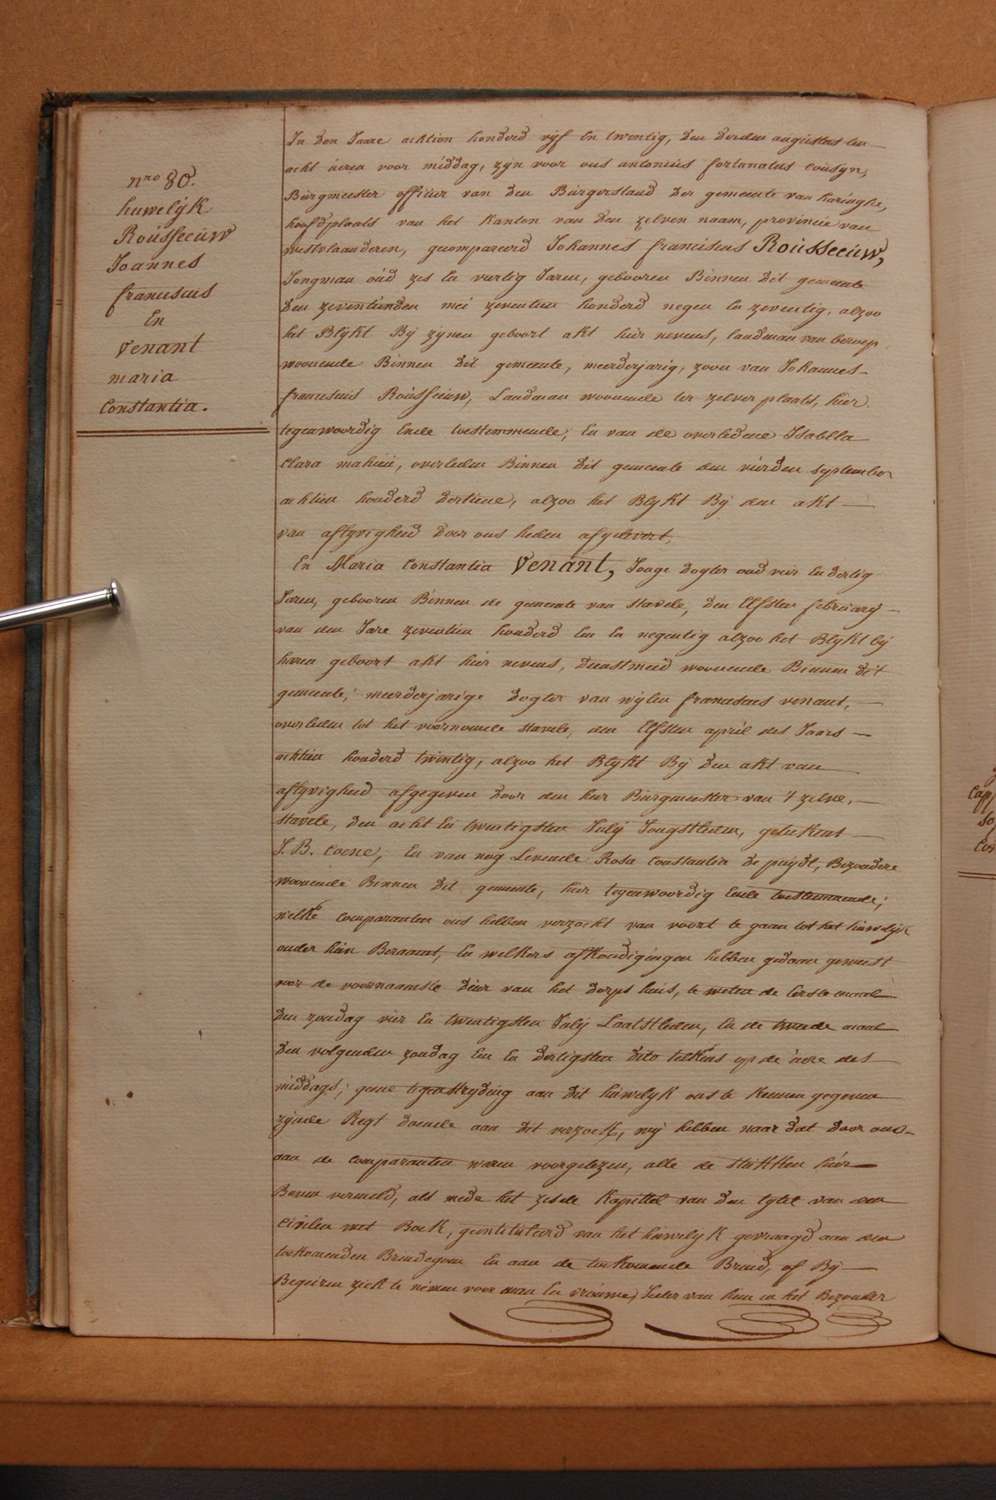 nro 80.
huwelÿk
Roússeeúw
Joannes
franciscus
En
Venant
maria
Constantia.
In den Jaare achtien honderd vyf En twentig, den derden augustus ten
acht úeren voor middag, zyn voor ons antonius fortunatus cousyn,
Búrgmeester officier van den Búrgerstand der gemeente van haringhe,
hoofdplaats van het Kanton van den zelven naam, provincie van
westvlaanderen, gecompareerd Johannes franciscus Roússeeúw,
Jongman oúd zes En veertig Jaren, gebooren Binnen dit gemeente
den zeventienden mei zeventien honderd negen En zeventig, alzoo
het Blÿkt Bÿ zÿnen geboort akt hier nevens, landman van beroep
woonende Binnen dit gemeente, meerderjarig, zoon van Johannes
franciscus Roússeeuw, Landman woonende ter zelver plaats, hier
tegenwoordig Ende toestemmende; En van de overledene Isabella
Clara mahieú, overleden Binnen dit gemeente den vierden september
achtien honderd dertiene, alzoo het Blykt Bÿ den akt
van aflyvigheid door ons heden afgelevert,
En Maria Constantia Venant, Jonge dogter oud vier En dertig
Jaren, gebooren Binnen de gemeente van Stavele, den Elfsten febrúarÿ
van den Jare zeventien honderd Een En negentig alzoo het Blÿkt bÿ
haren geboort akt hier nevens, dienstmeid woonende Binnen dit
gemeente, meerderjarige dogter van wÿlen franciscus venant,
overleden tot het voornoemde Stavele, den Elfsten april des Jaars
achtien honderd twintig, alzoo het Blÿkt Bÿ den akt van
aflyvigheid afgegeven door den heer Búrgmeester van 't zelve
Stavele, den acht En twentigsten Julÿ Jongstleden, geteekent
J. B. Coene; En van nog Levende Rosa Constantia De puÿdt, Bezondere
woonende Binnen dit gemeente, hier tegenwoordig Ende toestemmende;
welke comparanten ons hebben verzocht van voort te gaan tot het húwelÿk
onder hún Beraamt, En welkers afkondigingen hebben gedaan geweest
voor de voornaamste deúr van het dorps huis, te weten de Eerste maal
den zondag vier En twentigsten Julÿ Laatstleden, En de tweede maal
den volgenden zondag Een En dertigsten dito telkens op de úere des
middags; geene tegenstryding aan dit húwelÿk ons te Kennen gegeven
zÿnde Regt doende aan dit verzoek, wÿ hebben naar dat door ons
aan de comparanten waren voorgelezen, alle de stukken hier
Boven vermeld, als mede het zesde Kapittel van den tytel van den
Civilen wet Boek, geintituleerd van het húwelÿk gevraagd aan den
toekomenden Bruidegom En aan de toekomende Bruid, of Bÿ
Begeiren zich te nemen voor man En vrouwe, Ieder van hun in het Bezonder
Capp